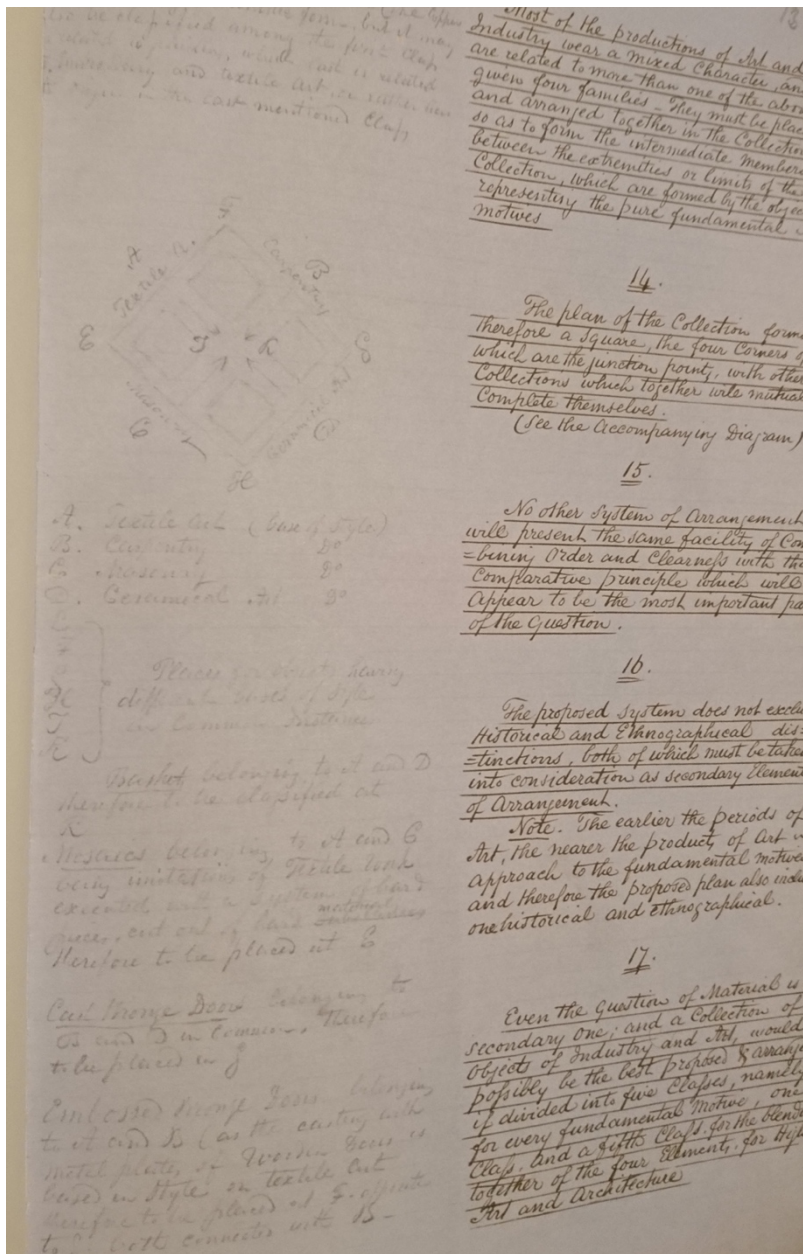 also be classified among the first Class
and textile Art or rather
in the last mentioned Class
F
A
Textile A.
B
Carpentry
E
J
K
G
Masonry
C
Ceramic Art
D
H
A. Textile Art (base of Style)
B. Carpentry do
C. Masonry do
D. Ceramical Art do
E
F
G
H
J
K
Places for objects having
different bases of Style
in Common
Basket belonging to A and D
therefore to be classified at
K
Mosaics belonging to A and C
being imitations of Textile work
executed in the System of hard
pieces, cut out of hard material
therefore to be placed at E
Cast Bronze Door belonging to
B and D in Common, therefore
to be placed in G
Embossed Bronze Doors belonging
to A and B (as the casting with
Metal plates of Wooden Doors is
based in Style on textile Art
therefore to be placed at F.
both connected with B-
13
Most of the productions of Art and
Industry wear a mixed Character, an
are related to more than one of the abov
given four families - They must be plac
and arranged together in the Collection
so as to form the intermediate Member
between the extremities or limits of the
Collection, which are formed by the objec
representing the pure fundamental
motives
14.
The plan of the Collection forms
therefore a Square, the four Corners o
which are the junction points, with other
Collections which together will mutual
Complete themselves.
(See the accompanying Diagram)
15.
No other System of Arrangement
will present the same facility of Com
=bining Order and Clearness with the
Comparative principle which will
appear to be the most important pa
of the Question.
16.
The proposed System does not exclu
Historical and Ethnographical dis=
=tinctions, both of which must be taken
into consideration as secondary Element
of Arrangement.
Note. The earlier the periods of
Art, the nearer the products of Art
approach to the fundamental motives
and therefore the proposed plan also inclu
one historical and ethnographical.
17.
Even the Question of Material is
secondary one; and a Collection of
Objects of Industry and Art, would
possibly be the best proposed & arrange
if divided into five Classes, namely
for every fundamental Motive, one
Class, and a fifth Class, for the blendi
together of the four Elements, for High
Art and Architecture